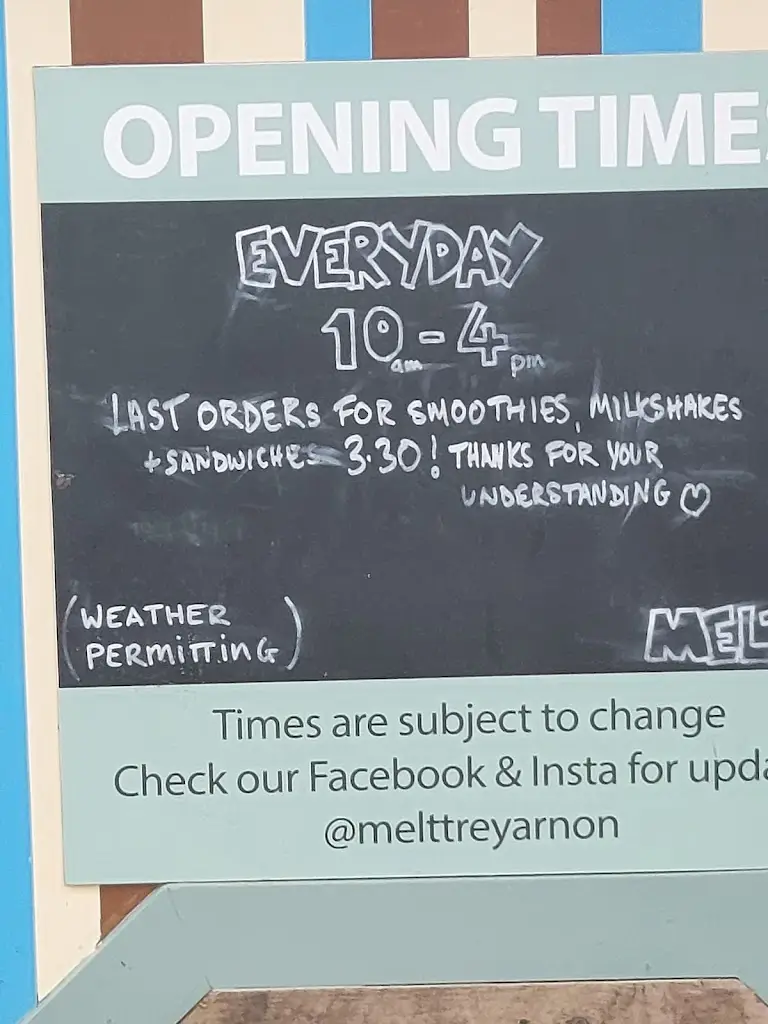 OPENING TIMES
EVERYDAY
10am - 4pm
LAST ORDERS FOR SMOOTHIES, MILKSHAKES
+ SANDWICHES 3.30! THANKS FOR YOUR
UNDERSTANDING ♡
(WEATHER
PERMITTING)
MEL
Times are subject to change
Check our Facebook & Insta for upda
@melttreyarnon